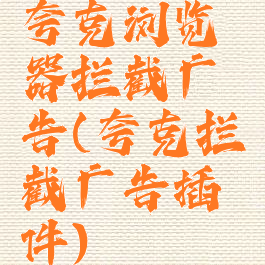 夸克浏览
器拦截广
告(夸克拦
截广告插
件)